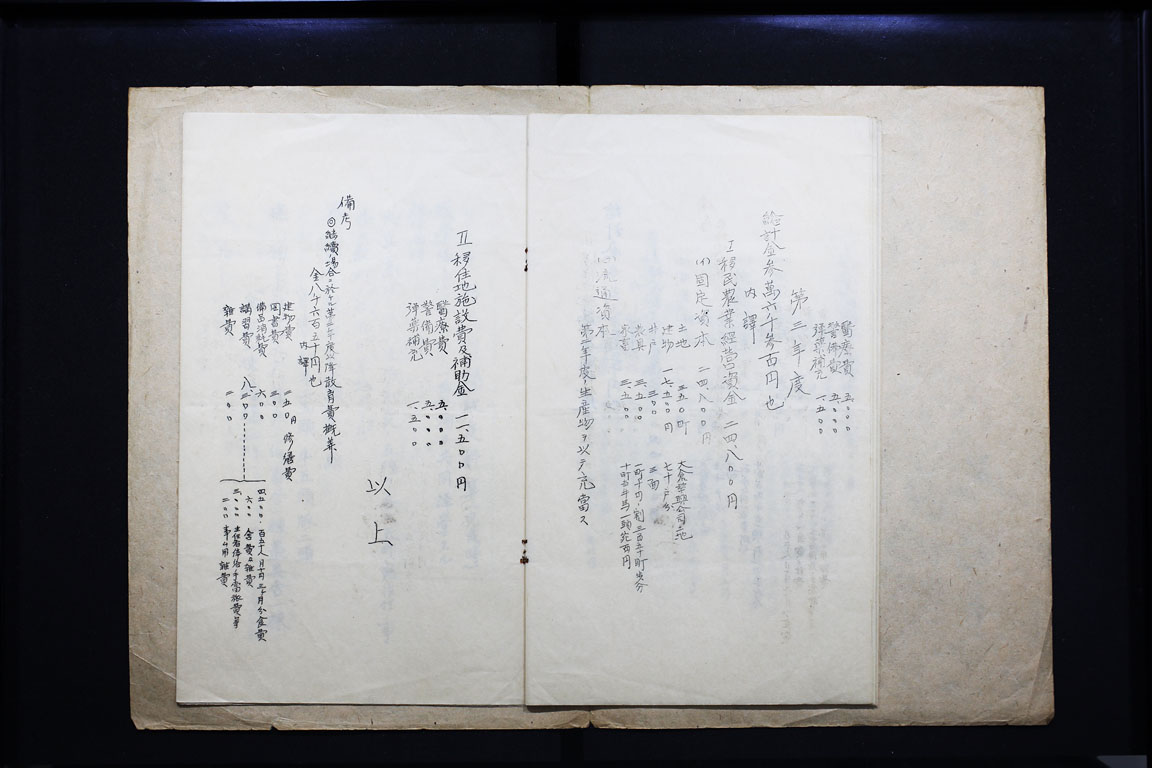 醫療費 五、〇〇〇
警備費 五、〇〇〇
彈藥補充 一、五〇〇
第三年度
總計金參萬六千參百円也
内譯
I 移民農業經営資金 二四、八〇〇円
(イ) 固定資本 二四、八〇〇円
土地 三五〇町
建物 一七、五〇〇円 七十戸分
井戸 三〇〇 三面
農具 三、五〇〇 一町十円ノ割三百五十町歩分
家畜 三、五〇〇
(ロ) 流通資本
第二年度ノ生産物ヲ以テ充當ス
II 移住地施設費及補助金 一一、五〇〇円
醫療費 五、〇〇〇
警備費 五、〇〇〇
彈藥補充 一、五〇〇
以上
備考
◎繼續ノ場合ニ於ケル第三年度以降教育費概算
金八千六百五十円也
内譯
建物費 二五〇円 修繕費
図書費 三〇〇
備品消耗費 六〇〇
講習費 八、三〇〇
四、五〇〇 百五十人一月十円三ヶ月分食費
六〇〇 舎費及雑費
三、〇〇〇 主任者俸給手當旅費等
二〇〇 事ム用雑費
雜費 二〇〇